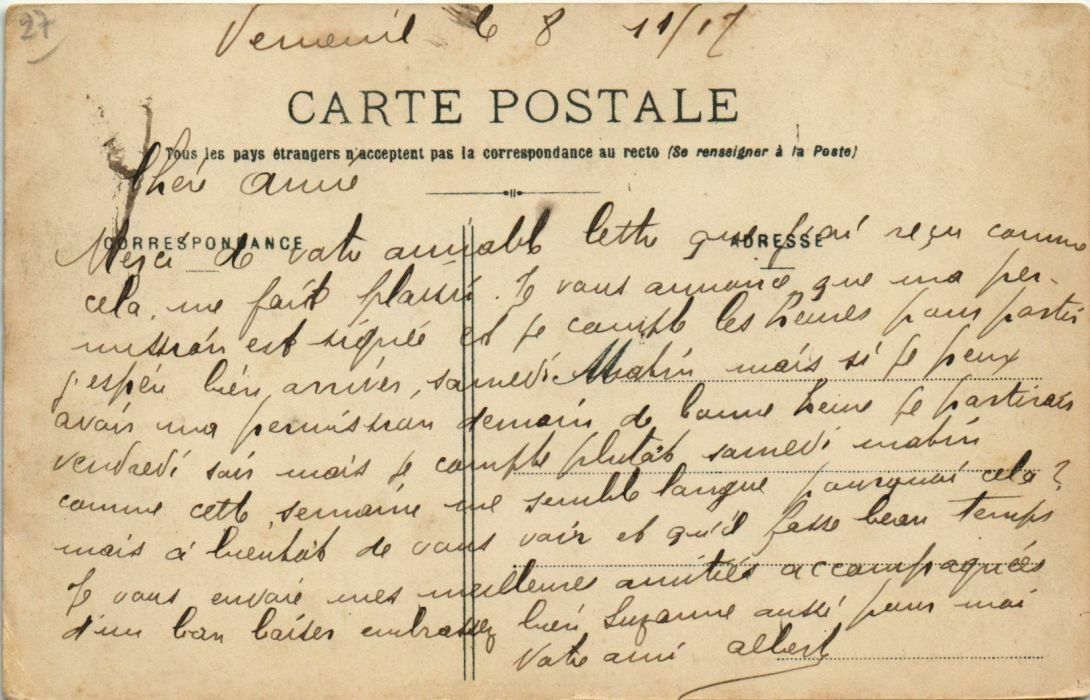 27
Verneuil le 8 11/17
CARTE POSTALE
Tous les pays étrangers n'acceptent pas la correspondance au recto (Se renseigner à la Poste)
Chère amie
CORRESPONDANCE
ADRESSE
Merci de votre aimable lettre que j'ai reçu comme
cela me fait plaisir. Je vous annonce que ma per-
mission est signée et je compte les heures pour partir
j'espère bien arriver, samedi Matin mais si je peux
avoir ma permission demain de bonne heure je partirais
vendredi soir mais je compte plutôt samedi matin
comme cette semaine me semble longue pourquoi cela ?
mais à bientôt de vous voir et qu'il fasse beau temps
Je vous envoie mes meilleures amitiés accompagnées
d'un bon baiser embrassez bien Suzanne aussi pour moi
Votre ami albert